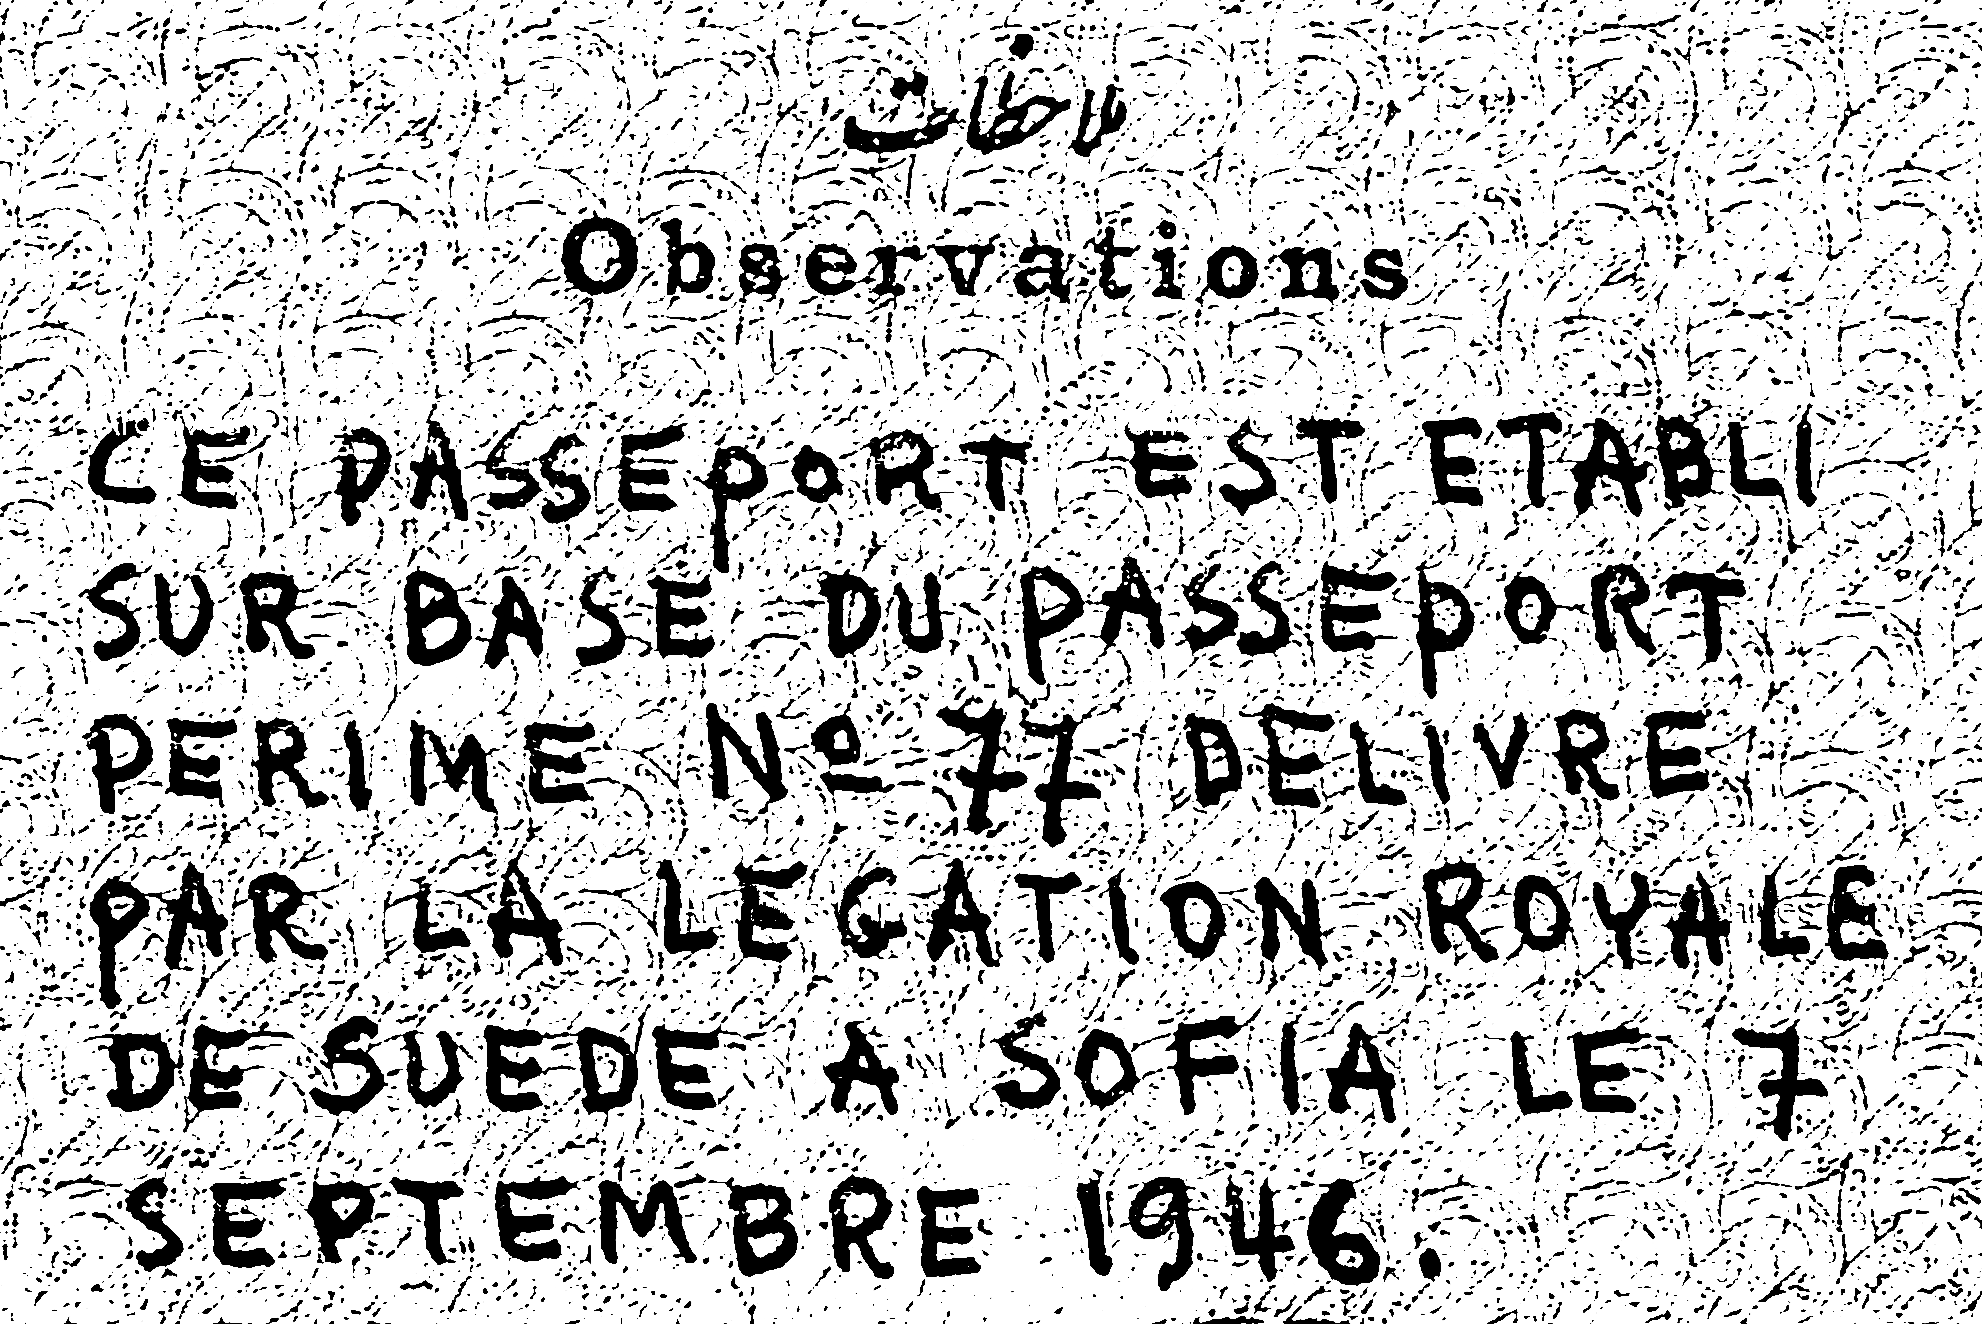 ملاحظات
Observations
CE PASSEPORT EST ETABLI
SUR BASE DU PASSEPORT
PERIME Nº 77 DELIVRE
PAR LA LEGATION ROYALE
DE SUEDE A SOFIA LE 7
SEPTEMBRE 1946.